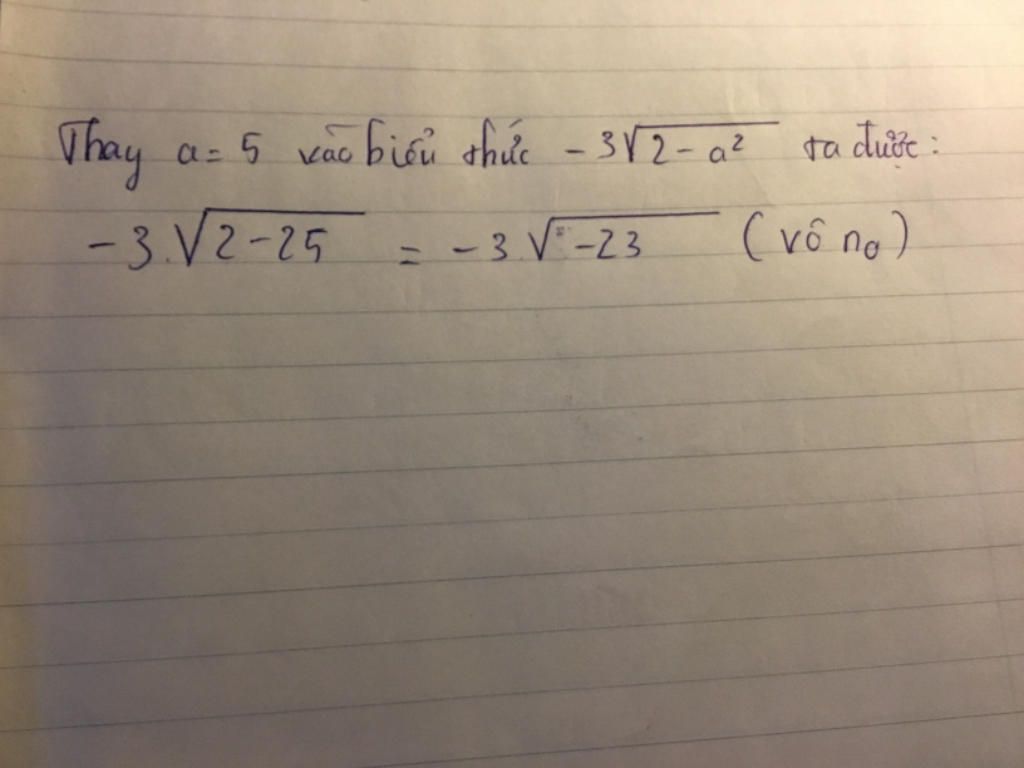 Thay a = 5 vào biểu thức -3√2-a² ta được:
-3.√2-25 = -3.√-23 (vô nₒ)